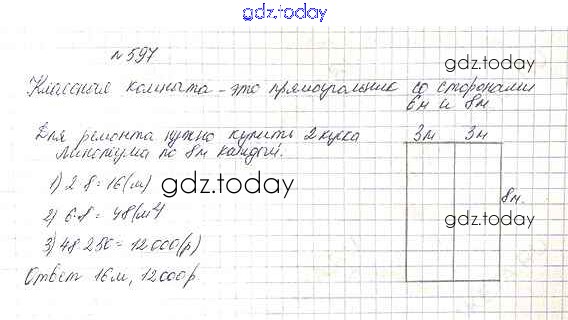 gdz.today
№ 597
gdz.today
Классная комната - это прямоугольник со сторонами
6м и 8м
Для ремонта нужно купить 2 куска
линолеума по 8м каждый.
3м 3м
1) 2·8=16(м)
gdz.today
8м.
2) 6·8=48(м²)
gdz.today
3) 48·250=12000(р)
Ответ 16м, 12000р